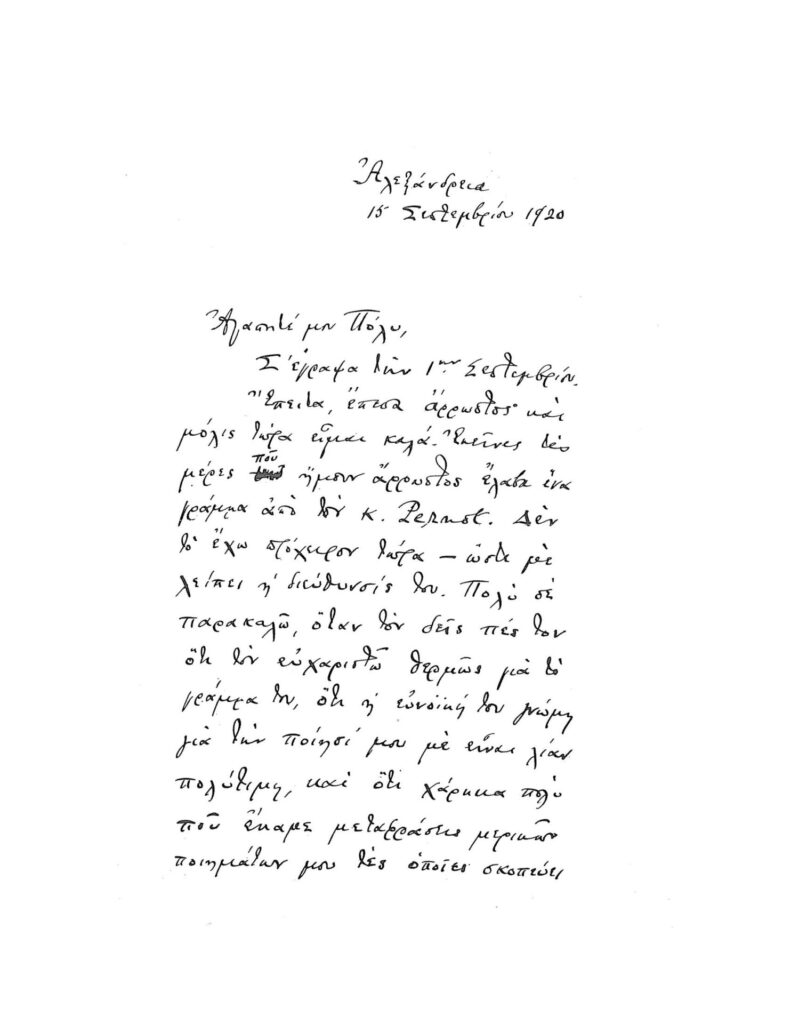 Ἀλεξάνδρεια
15 Σεπτεμβρίου 1920
Ἀγαπητέ μου Πόλυ,
Σ' ἔγραψα τὴν 1ην Σεπτεμβρίου.
Ἔπειτα, ἔπεσα ἄρρωστος καὶ
μόλις τώρα εἶμαι καλά. Ἐκεῖνες τὲς
μέρες ποῦ ἤμουν ἄρρωστος ἔλαβα ἕνα
γράμμα ἀπὸ τὸν κ. Pernot. Δὲν
τὸ ἔχω πρόχειρον τώρα — ὥστε μὲ
λείπει ἡ διεύθυνσίς του. Πολὺ σὲ
παρακαλῶ, ὅταν τὸν δεῖς πές τον
ὅτι τὸν εὐχαριστῶ θερμῶς γιὰ τὸ
γράμμα του, ὅτι ἡ εὐνοϊκή του γνώμη
γιὰ τὴν ποίησί μου μὲ εἶναι λίαν
πολύτιμη, καὶ ὅτι χάρηκα πολὺ
ποῦ ἔκαμε μεταφράσεις μερικῶν
ποιημάτων μου τὲς ὁποῖες σκοπεύει